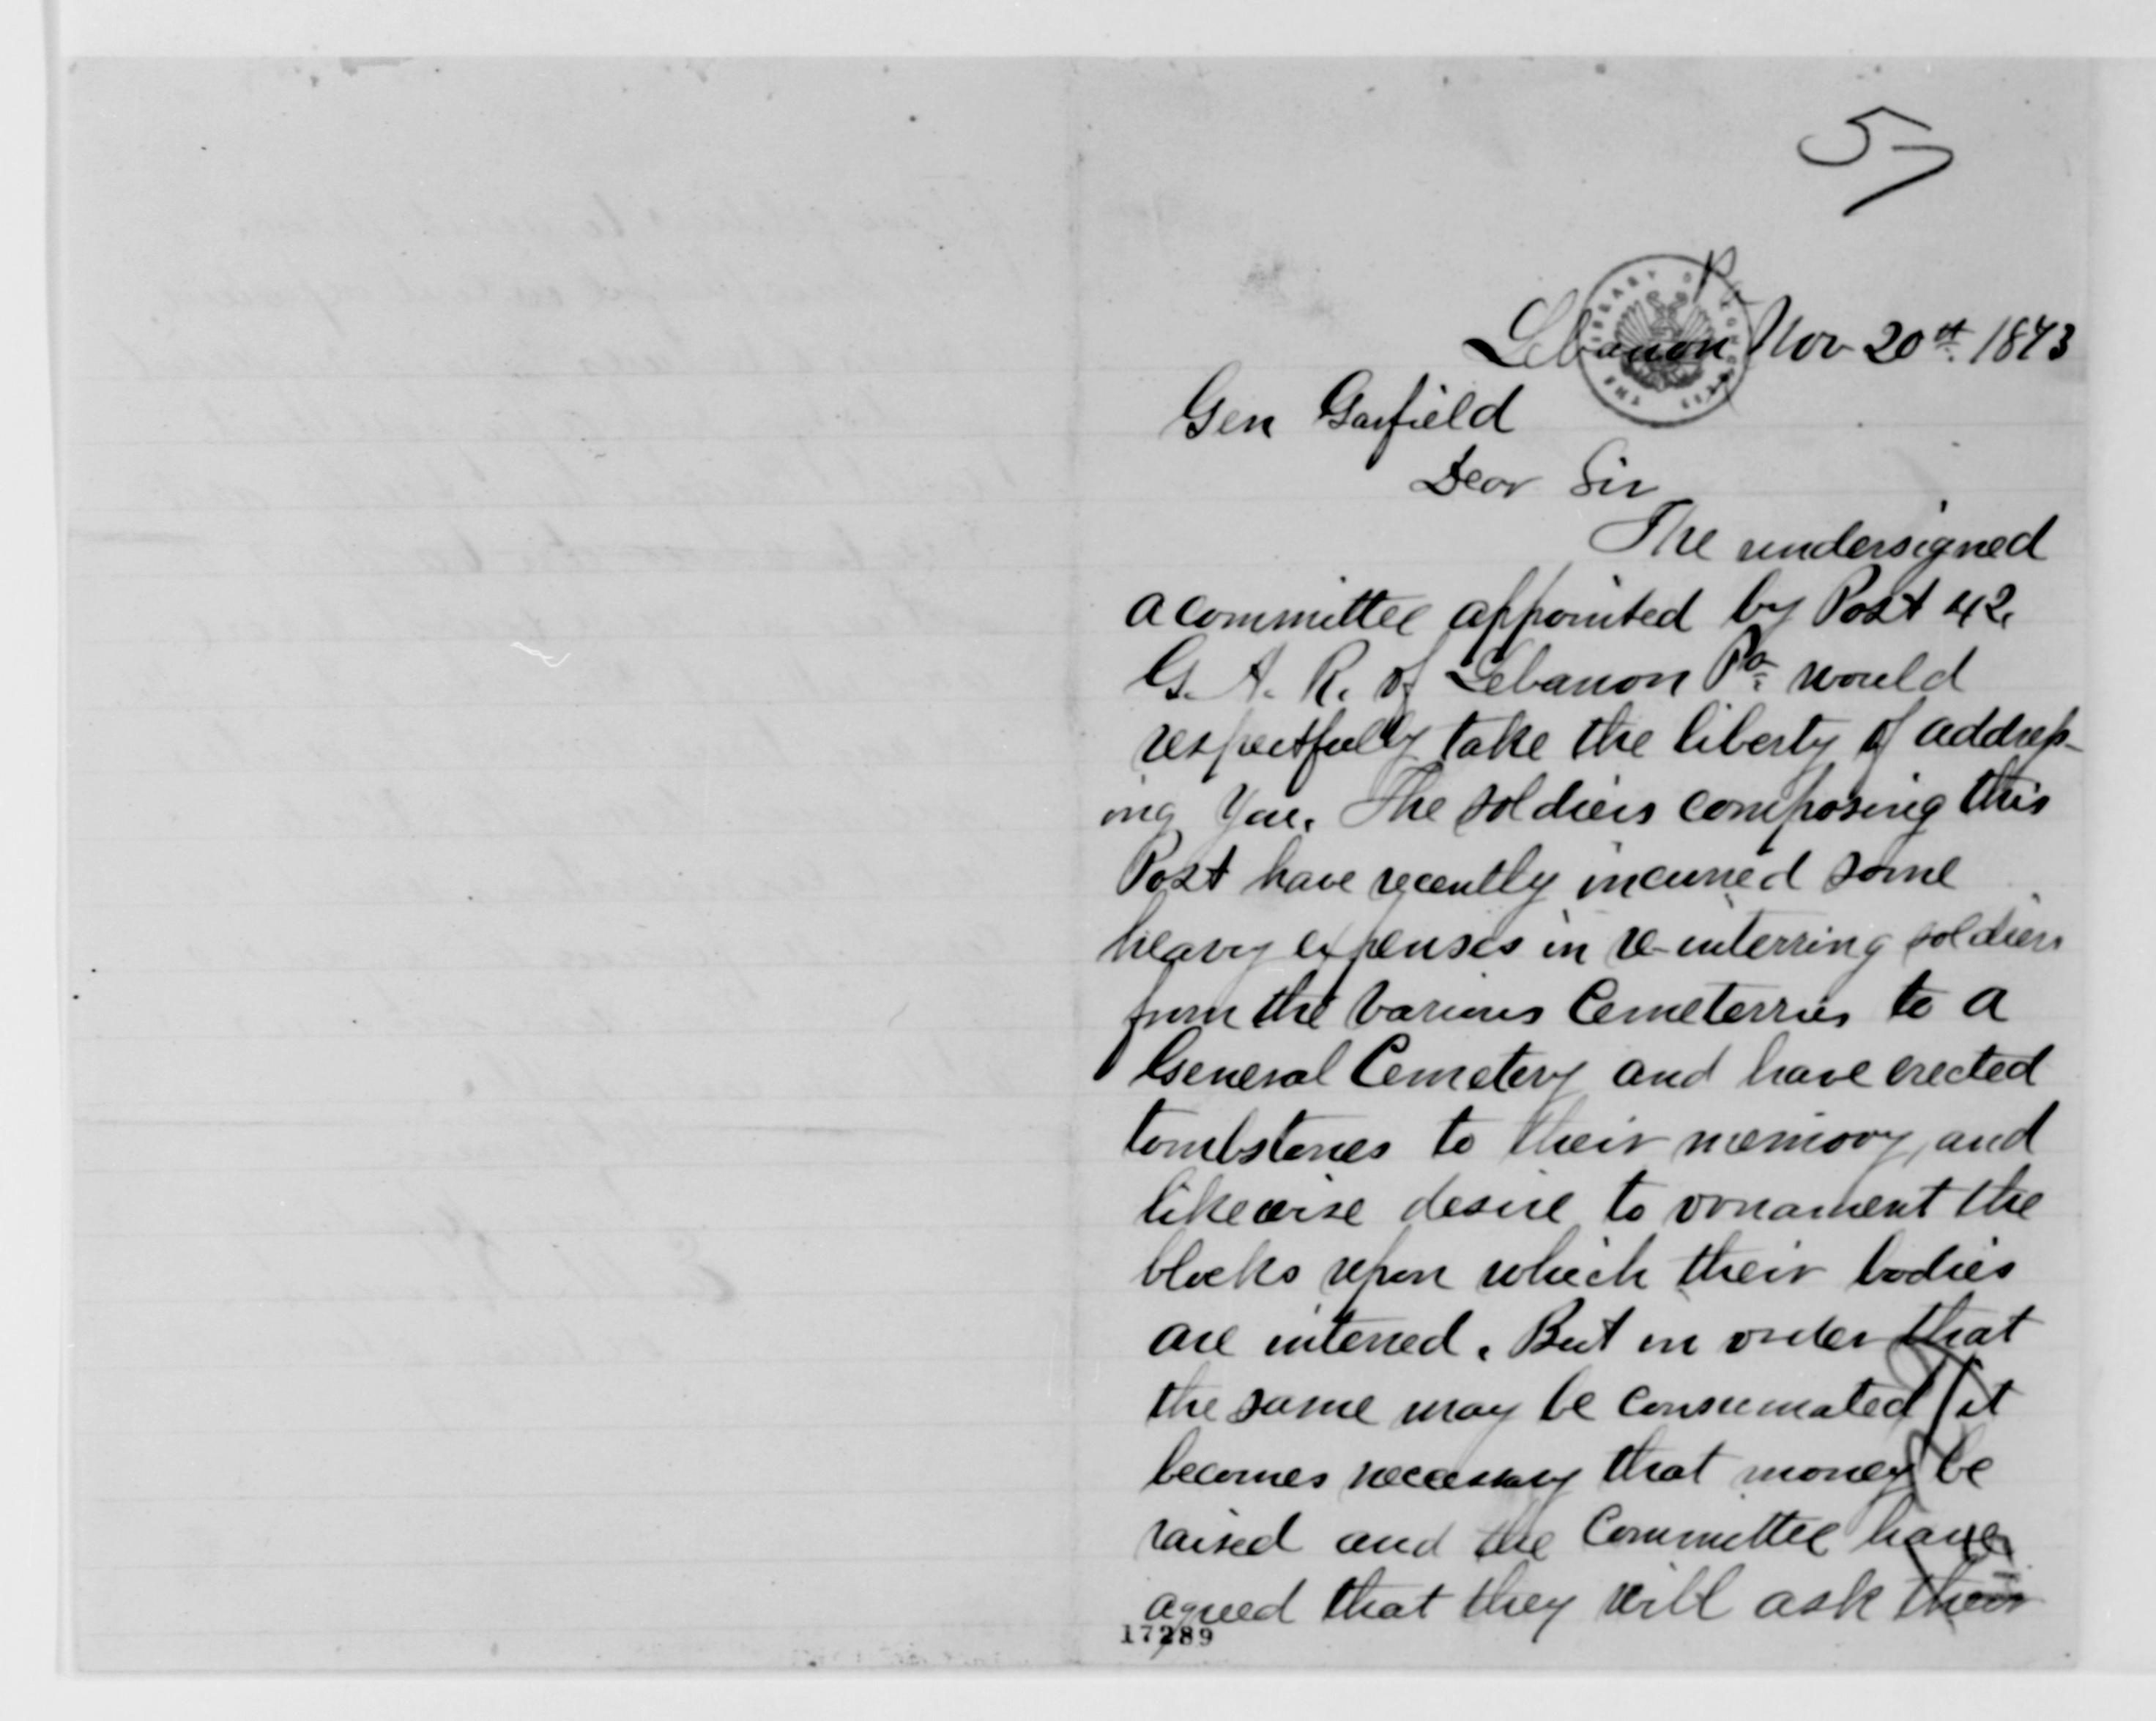 57
Pa
Lebanon Nov 20th 1873
Gen Garfield
Dear Sir
The undersigned
a committee appointed by Post 42.
G. A. R. of Lebanon Pa. would
respectfully take the liberty of address-
ing You. The soldiers composing this
Post have recently incurred some
heavy expenses in re-interring soldiers
from the various Cemeterries to a
General Cemetery and have erected
tombstones to their memory, and
likewise desire to ornament the
blocks upon which their bodies
are interred. But in order that
the same may be consumated it
becomes necessary that money be
raised and the Committee have
agreed that they will ask their
17289